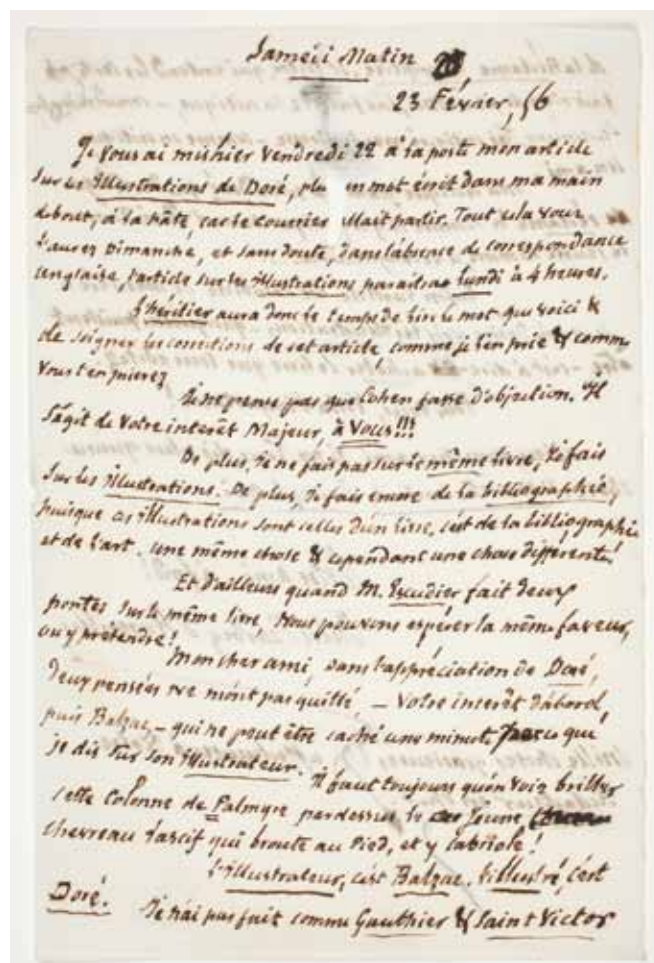 Samedi Matin
23 Février, 56
Je vous ai mis hier vendredi 22 à la poste mon article
sur les illustrations de Doré, plus un mot écrit dans ma main
debout, à la hâte, car le courrier allait partir. Tout cela vous
l'aurez Dimanche, et sans doute, dans l'absence de correspondance
anglaise, l'article sur les illustrations paraîtra lundi à 4 heures.
L'héritier aura donc le temps de lire le mot que voici &
de soigner les corrections de cet article comme je l'en prie & comme
vous l'en prierez
Je ne pense pas que Cohen fasse d'objection. Il
s'agit de votre interêt Majeur, à Vous!!!
De plus, je ne fais pas sur le même livre, je fais
sur les illustrations. De plus, je fais encore de la bibliographie,
puisque ces illustrations sont celles d'un livre, c'est de la bibliographie
et de l'art. une même chose & cependant une chose différente!
Et d'ailleurs quand M. Escudier fait deux
pontes sur le même livre, Nous pouvons espérer la même faveur,
ou y prétendre!
Mon cher ami, dans l'appréciation de Doré,
deux pensées ne m'ont pas quitté, — Votre interêt d'abord,
puis Balzac — qui ne peut être caché une minute par ce que
je dis sur son illustrateur. Il faut toujours qu'on voie briller
cette Colonne de Palmyre par dessus le jeune
chevreau lascif qui broute au pied, et y cabriole!
L'illustrateur, c'est Balzac. L'illustré, c'est
Doré. Je n'ai pas fait comme Gauthier & Saint Victor